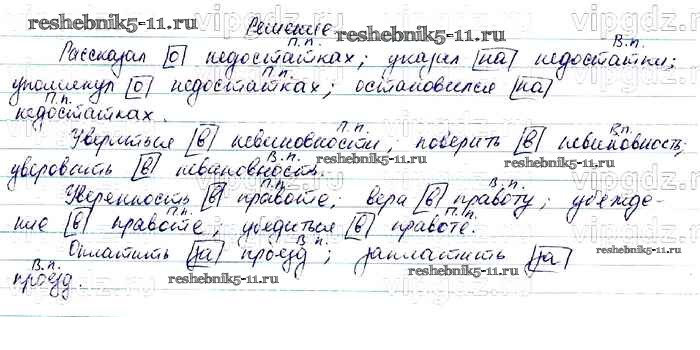 Решение
П.п. В.п.
Рассказал [о] недостатках; указал [на] недостатки;
П.п.
упомянул [о] недостатках; остановился [на]
П.п.
недостатках.
П.п. В.п.
Увериться [в] невиновности; поверить [в] невиновность;
В.п.
уверовать [в] невиновность.
П.п. В.п.
Уверенность [в] правоте; вера [в] правоту; убежде-
П.п. П.п.
ние [в] правоте; убедиться [в] правоте.
В.п.
Оплатить [за] проезд; заплатить [за]
В.п.
проезд.
reshebnik5-11.ru
reshebnik5-11.ru
reshebnik5-11.ru
reshebnik5-11.ru
reshebnik5-11.ru
reshebnik5-11.ru
vipgdz.ru